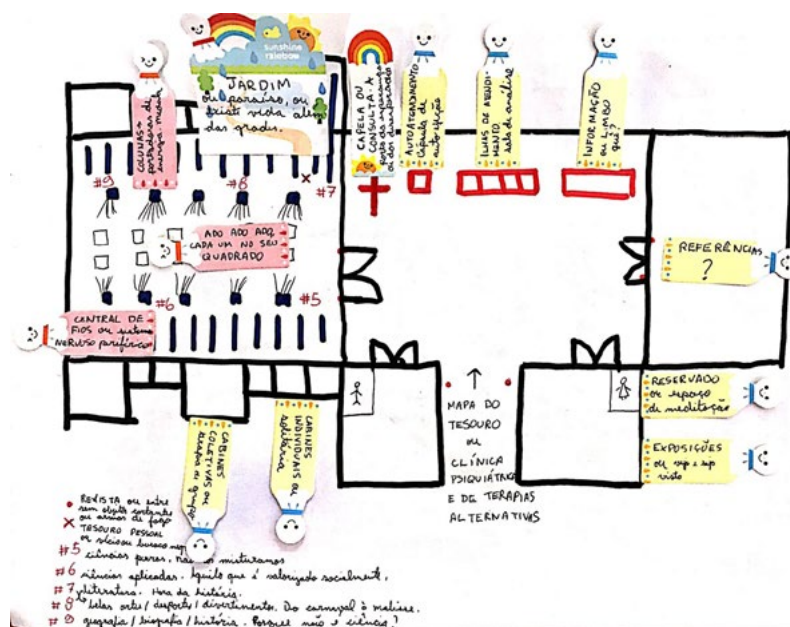 sunshine
rainbow
JARDIM
ou paraíso, ou
existe vida além
das grades.
COLUNAS
portadoras de
energia
CAPELA OU
CONSULTA. A
porta da esperança
ou dos desesperados
AUTOATENDIMENTO
cápsula de
auto
ILHAS DE ATENDI-
MENTO
sala de análise
INFORMAÇÃO
OU LIMBO
quê?
#9
#8
#7
ADO ADO ADO,
CADA UM NO SEU
QUADRADO
REFERÊNCIAS
?
#6
#5
CENTRAL DE
FIOS ou sistema
NERVOSO periférico
RESERVADO
ou espaço
de meditação
MAPA DO
TESOURO
OU
CLÍNICA
PSIQUIÁTRICA
E DE TERAPIAS
ALTERNATIVAS
EXPOSIÇÕES
ou vip e
visto
CABINES
COLETIVAS ou
terapia de grupo
CABINES
INDIVIDUAIS ou
solitária
REVISTA ou entre
sem objetos cortantes
ou armas de fogo
TESOURO PESSOAL
ou buraco
#5 ciências puras, não misturamos
#6 ciências aplicadas. Aquilo que é valorizado socialmente.
#7 literatura. Hora da história.
#8 belas artes / desportos / divertimento. Do carnaval à
#9 geografia / biografia / história. Porque não é ciência?